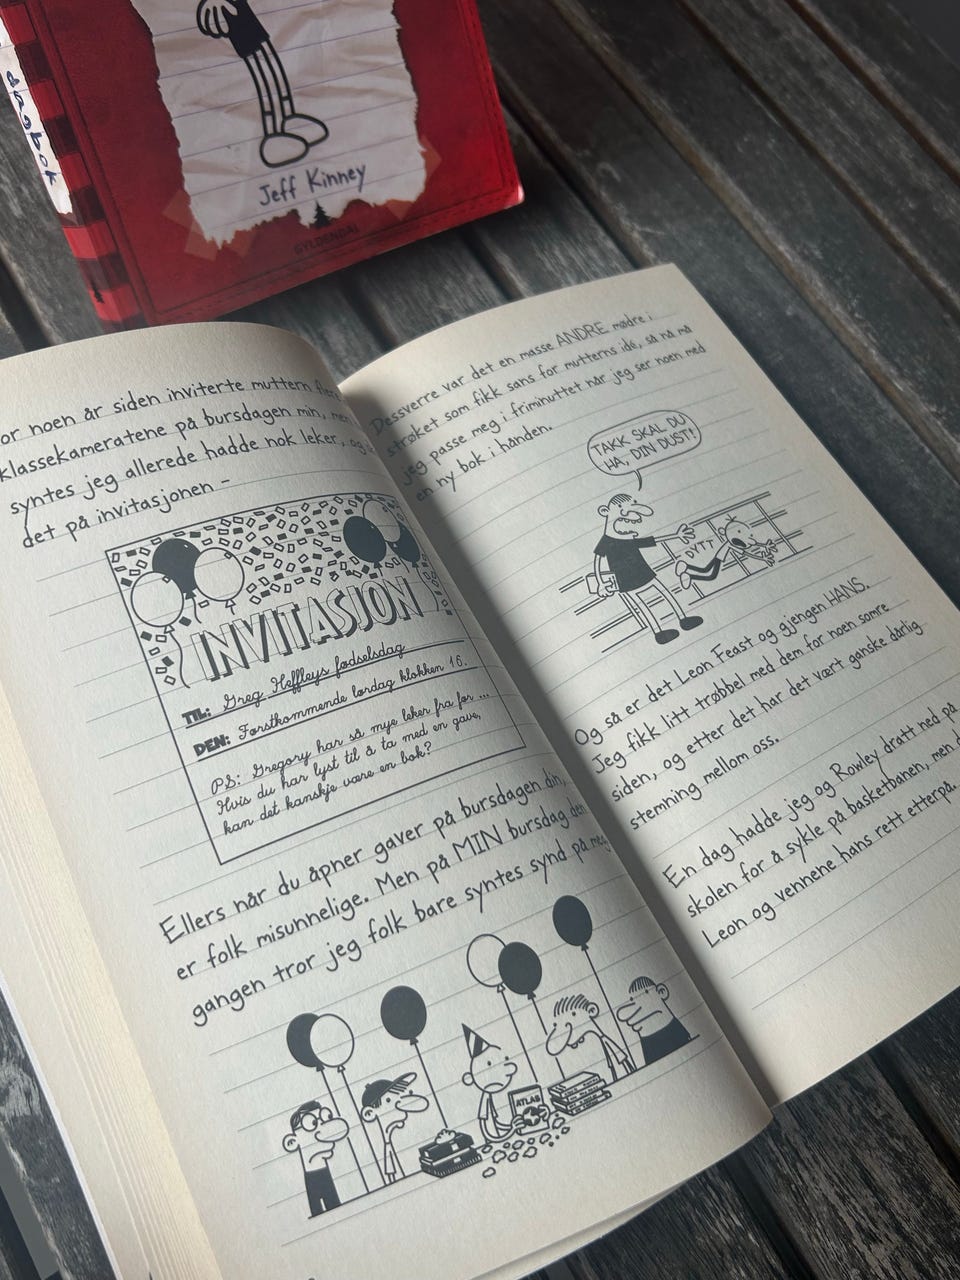 dagbok
Jeff Kinney
GYLDENDAL
or noen år siden inviterte muttern
klassekameratene på bursdagen min,
syntes jeg allerede hadde nok leker,
det på invitasjonen –
INVITASJON
TIL: Greg Heffleys fødselsdag
DEN: Førstkommende lørdag klokken 16.
PS: Gregory har så mye leker fra før ...
Hvis du har lyst til å ta med en gave,
kan det kanskje være en bok?
Ellers når du åpner gaver på bursdagen din,
er folk misunnelige. Men på MIN bursdag den
gangen tror jeg folk bare syntes synd på meg
ATLAS
Dessverre var det en masse ANDRE mødre i
strøket som fikk sans for mutterns idé, så nå må
jeg passe meg i friminuttet når jeg ser noen med
en ny bok i hånden.
TAKK SKAL DU
HA, DIN DUST!
DYTT
Og så er det Leon Feast og gjengen HANS.
Jeg fikk litt trøbbel med dem for noen somre
siden, og etter det har det vært ganske dårlig
stemning mellom oss.
En dag hadde jeg og Rowley dratt ned på
skolen for å sykle på basketbanen, men d
Leon og vennene hans rett etterpå.